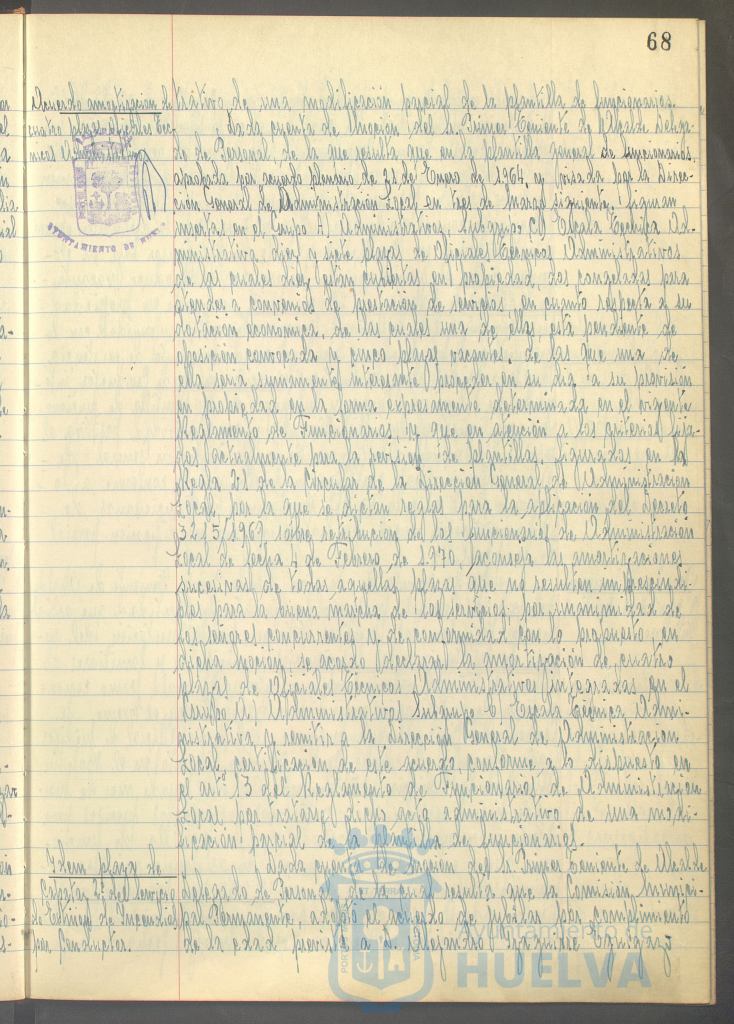 68
Acuerdo amortización de
cuatro plazas Oficiales Téc-
nicos Administrativos
AYUNTAMIENTO DE HUELVA
trativo de una modificación parcial de la plantilla de funcionarios.
Dada cuenta de Moción del Sr. Primer Teniente de Alcalde Delega-
do de Personal, de la que resulta que en la plantilla general de funcionarios,
aprobada por acuerdo plenario de 31 de Enero de 1964, y visada por la Direc-
ción General de Administración Local en tres de Marzo siguiente, figuran
insertas en el Grupo A) Administrativos, Subgrupo C) Escala Técnica Ad-
ministrativa, diez y siete plazas de Oficiales Técnicos Administrativos
de las cuales diez están cubiertas en propiedad, dos congeladas para
atender a convenios de prestación de servicios en cuanto respecta a su
dotación económica, de las cuales una de ellas, está pendiente de
oposición convocada y cinco plazas vacantes, de las que una de
ella sería sumamente interesante proceder en su día a su provisión
en propiedad en la forma expresamente determinada en el vigente
Reglamento de Funcionarios y que en atención a los criterios fija-
dos actualmente para la revisión de plantillas, figurados en la
Regla 21 de la Circular de la Dirección General de Administración
Local, por la que se dictan reglas para la aplicación del Decreto
3215/1969 sobre retribución de los funcionarios de Administración
Local de fecha 4 de Febrero de 1970, aconseja las amortizaciones
sucesivas de todas aquellas plazas que no resulten imprescindi-
bles para la buena marcha de los servicios, por unanimidad de
los señores concurrentes y de conformidad con lo propuesto, en
dicha Moción, se acordó declarar la amortización de cuatro
plazas de Oficiales Técnicos Administrativos integradas en el
Grupo A) Administrativos Subgrupo C) Escala Técnica Admi-
nistrativa y remitir a la Dirección General de Administración
Local, certificación de este acuerdo conforme a lo dispuesto en
el artº 13 del Reglamento de Funcionarios de Administración
Local por tratarse dicho acto administrativo de una modi-
ficación parcial de la plantilla de funcionarios.
Idem plaza de
Capataz 2º del servicio
de Extinción de Incendios
por Conductor.
Dada cuenta de Moción del Sr. Primer Teniente de Alcalde
Delegado de Personal, de la cual resulta que la Comisión Munici-
pal Permanente, adoptó el acuerdo de jubilar por cumplimiento
de la edad prevista a D. Alejandro
Ayuntamiento de
HUELVA